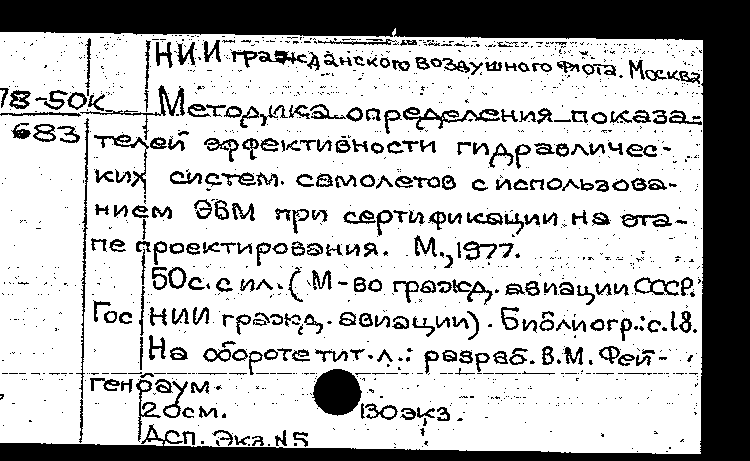 НИИ гражданского воздушного флота. Москва
78-50к Методика определения показа-
683 телей эффективности гидравличес-
ких систем самолетов с использова-
нием ЭВМ при сертификации на эта-
пе проектирования. М., 1977.
50с. с ил. (М-во гражд. авиации СССР.
Гос. НИИ гражд. авиации). Библиогр.: с.18.
На обороте тит. л.: разраб. В.М. Фей-
генбаум.
20см. 130 экз.
Дсп. Экз. N5